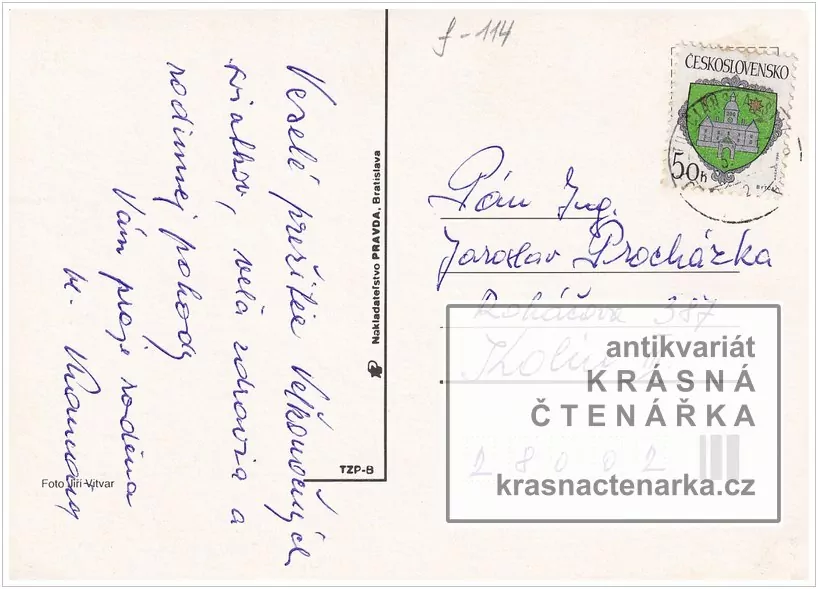 f-114
Veselé prežitie Veľkonočných
sviatkov, veľa zdravia a
rodinnej pohody
Vám praje rodina
Nakladateľstvo PRAVDA, Bratislava
TZP-B
Foto Jiří Vitvar
ČESKOSLOVENSKO
50h
Pán Ing.
Jaroslav Procházka
Roháčova 387
Kolín
28002
antikvariát
KRÁSNÁ
ČTENÁŘKA
krasnactenarka.cz